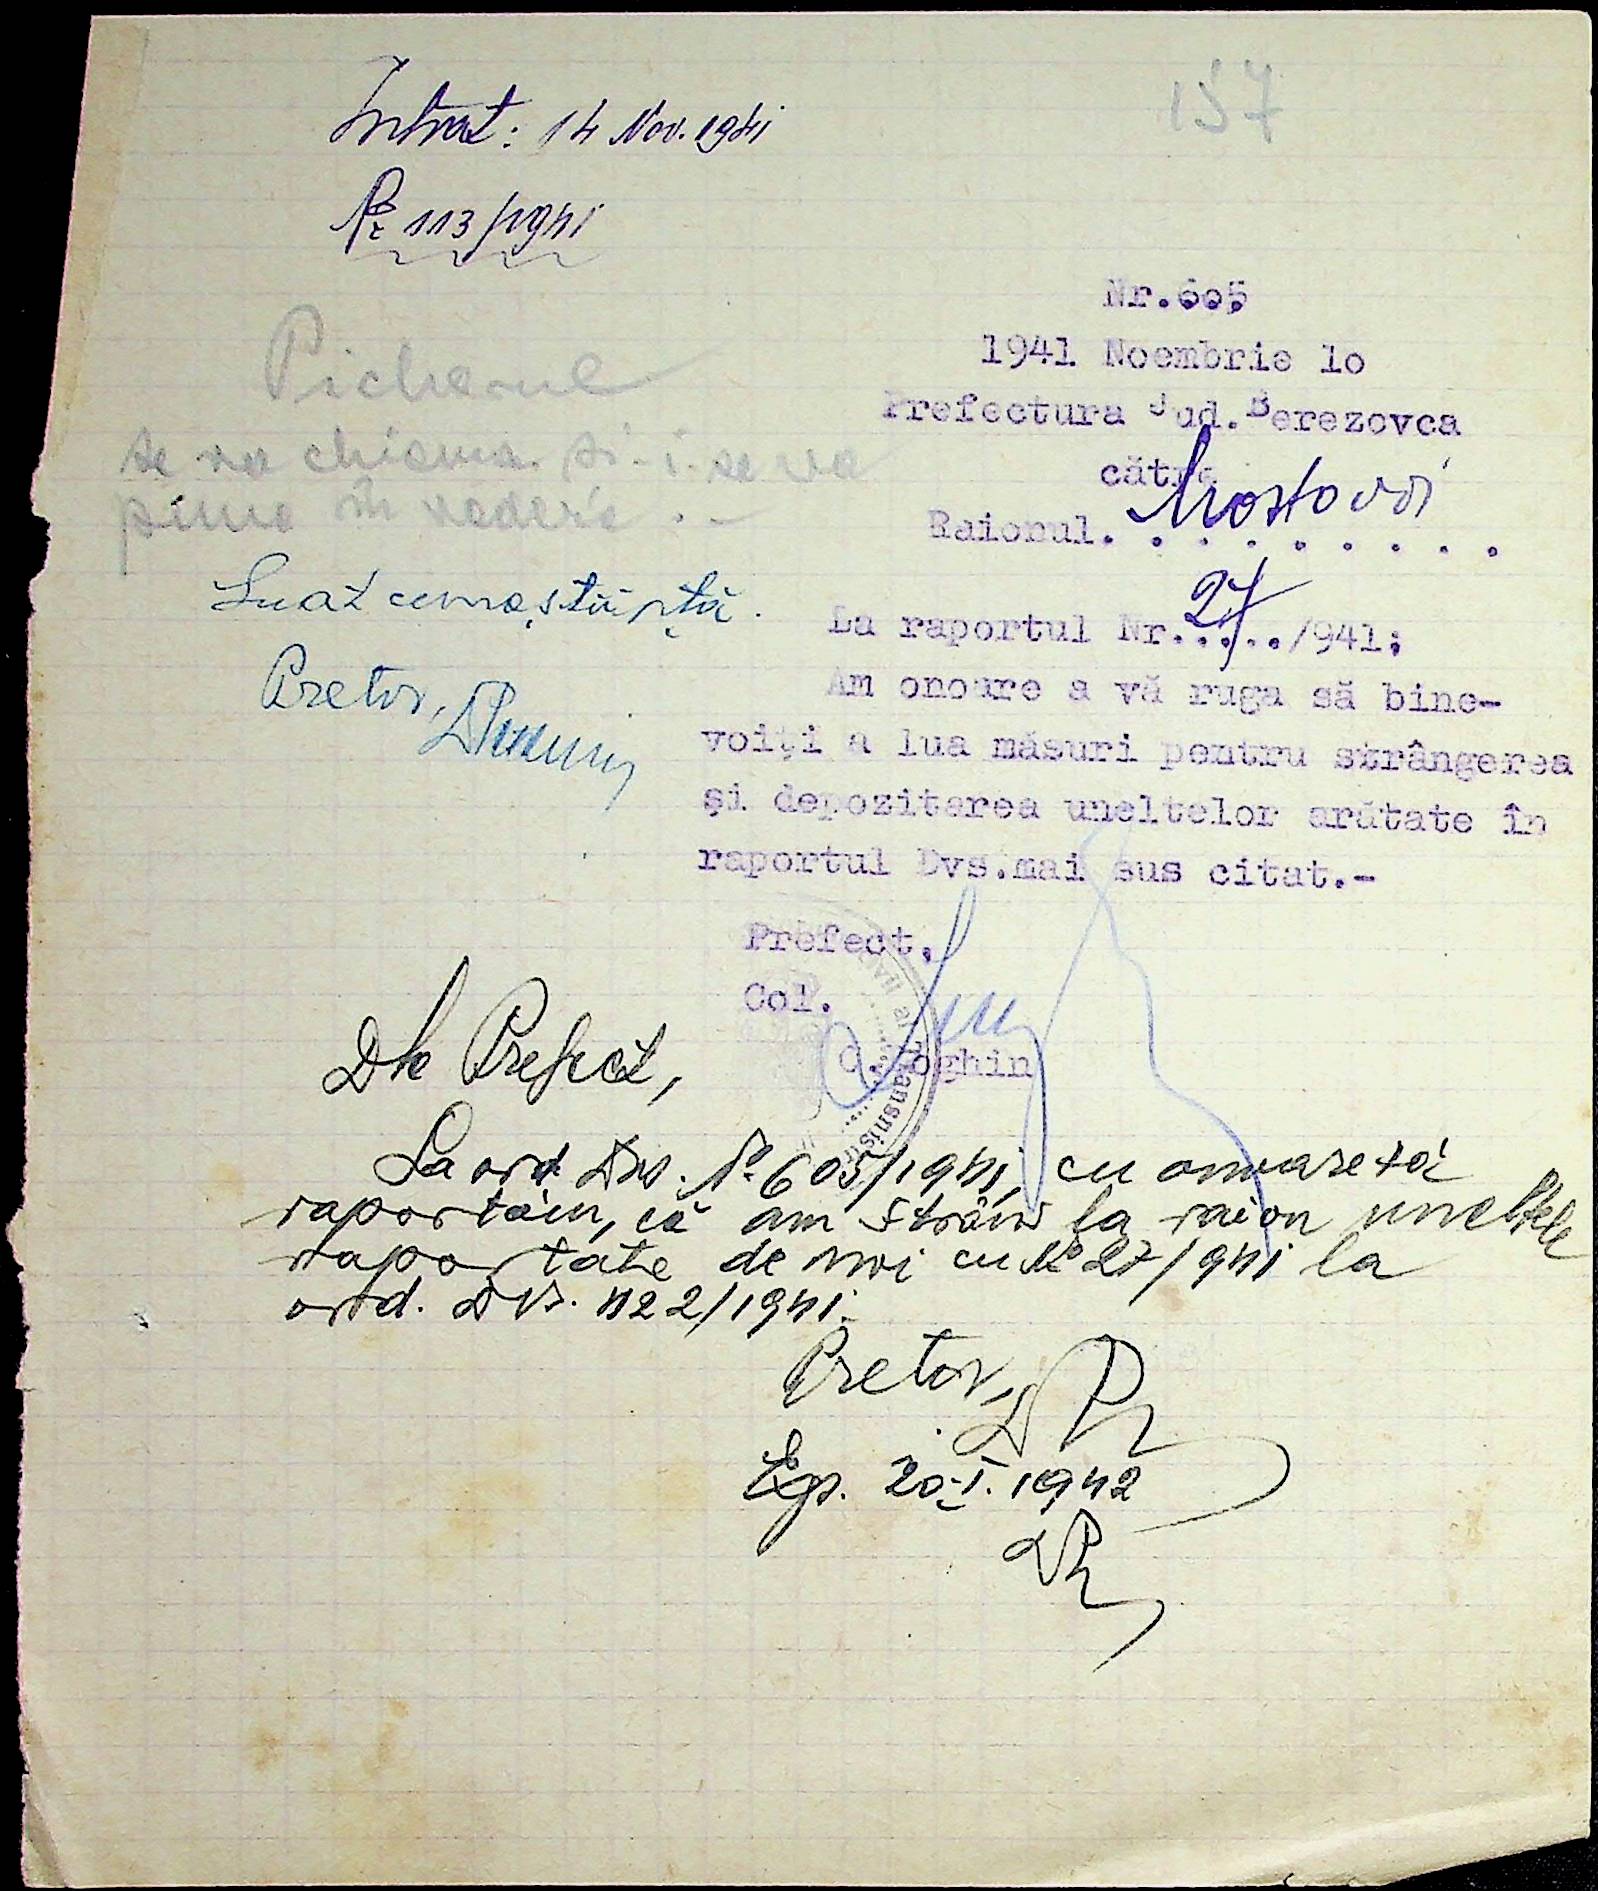 157
Intrat: 14 Nov. 1941
No 113/1941
Nr.605
1941 Noembrie 1o
Prefectura Jud.Berezovca
către
Raionul. Mostovoi
Picherul
se va chiema și-i se va
pune în vedere .-
Luat cunoștiință.
Pretor,
La raportul Nr. 27 /941;
Am onoare a vă ruga să bine-
voiți a lua măsuri pentru strângerea
și depozitarea uneltelor arătate în
raportul Dvs.mai sus citat.-
Prefect,
Col.
Loghin
Dle Prefect,
La ord. Dvs. No 605/1941, cu onoare vă
raportăm, că am strâns la raion uneltele
raportate de noi cu No 27/941 la
ord. Dvs. 422/1941.
Pretor,
Exp. 20.I.1942